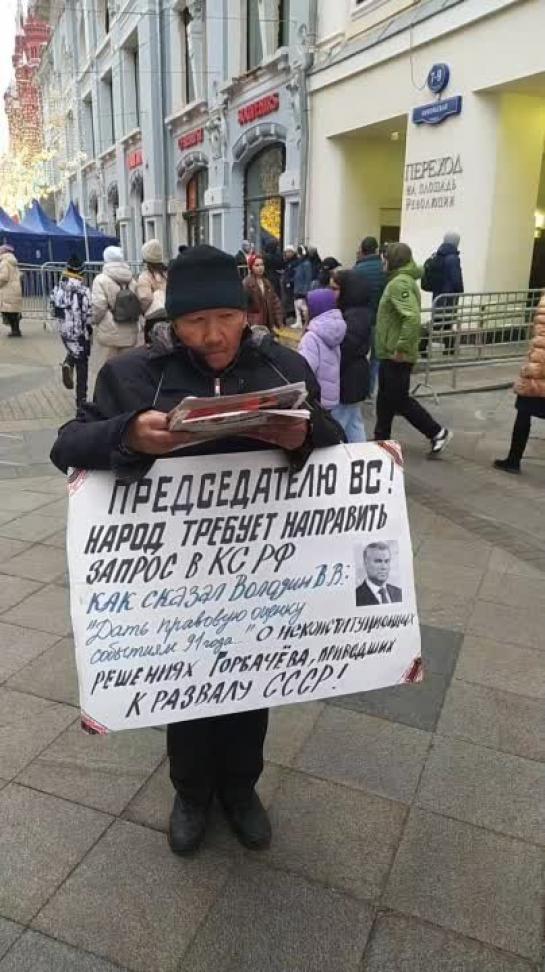 7-9
НИКОЛЬСКАЯ
ПЕРЕХОД
НА ПЛОЩАДЬ
РЕВОЛЮЦИИ
ПРЕДСЕДАТЕЛЮ ВС!
НАРОД ТРЕБУЕТ НАПРАВИТЬ
ЗАПРОС В КС РФ
КАК СКАЗАЛ Володин В.В.:
"Дать правовую оценку
событиям 91 года..." О НЕКОНСТИТУЦИОННЫХ
РЕШЕНИЯХ ГОРБАЧЁВА, ПРИВЕДШИХ
К РАЗВАЛУ СССР!